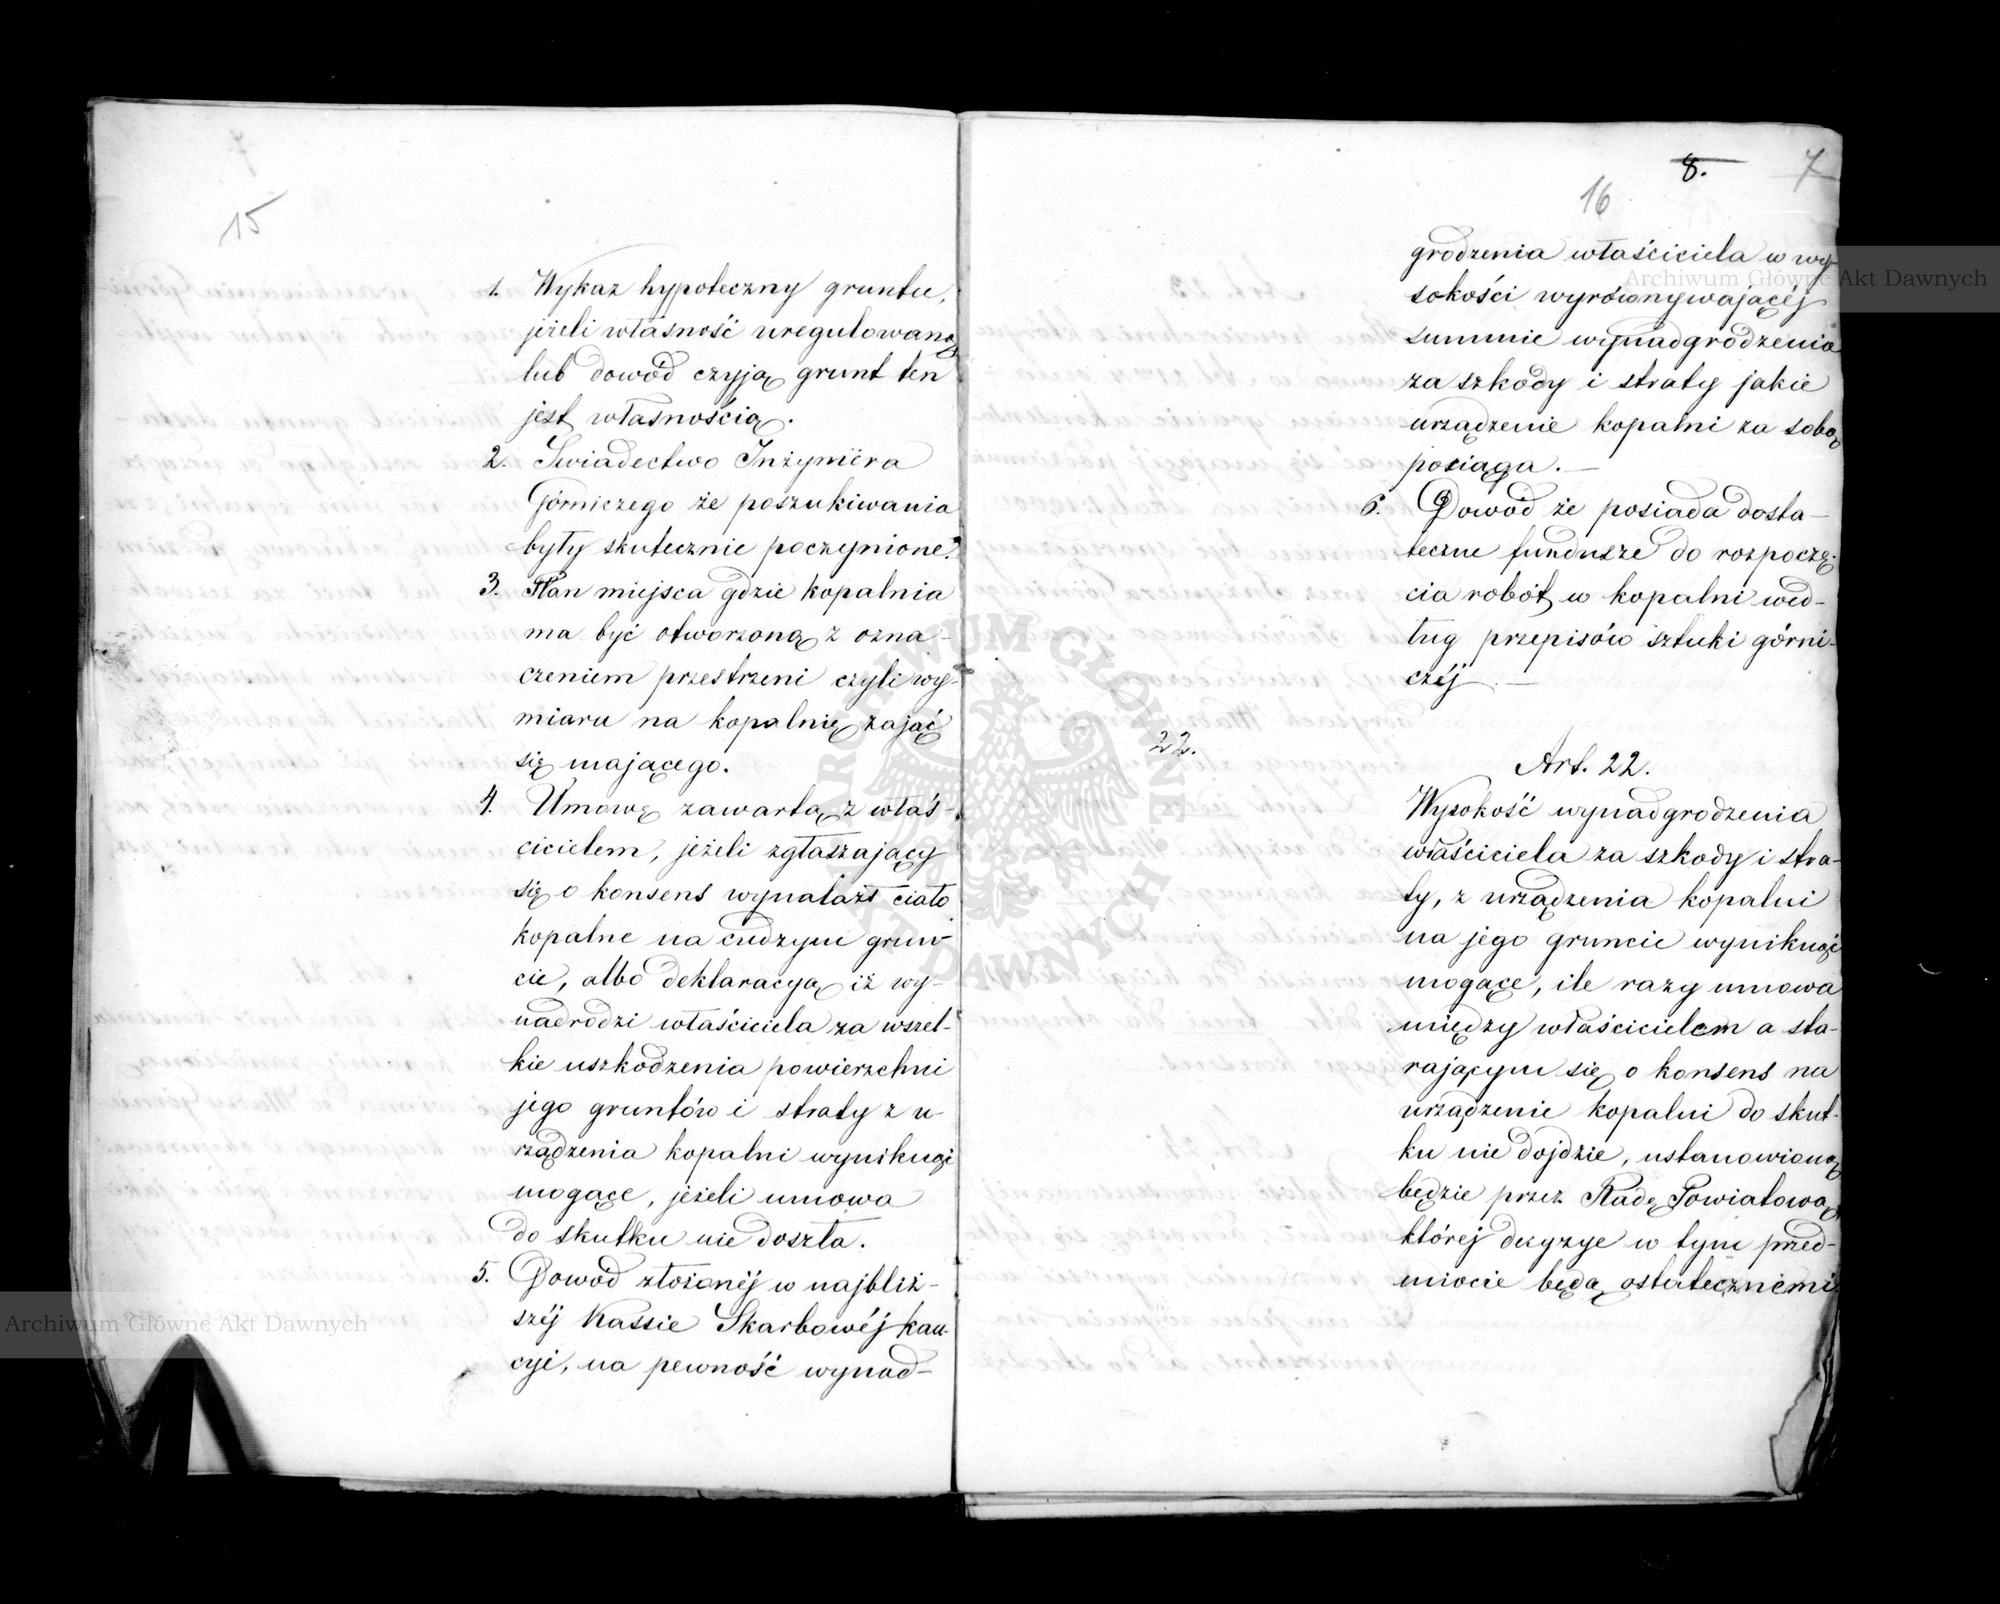 15
1. Wykaz hypoteczny gruntu,
jeżeli własność uregulowaną
lub dowód czyją grunt ten
jest własnością.
2. Swiadectwo Inżyniéra
Górniczego że poszukiwania
były skutecznie poczynione.
3. Plan miejsca gdzie kopalnia
ma być otworzoną z ozna-
czeniem przestrzeni czyli wy-
miaru na kopalnię zająć
się mającego.
4. Umowę zawartą z właś-
cicielem, jeżeli zgłaszający
się o konsens wynalazł ciało
kopalne na cudzym grun-
cie, albo deklaracyą iż wy-
nadrodzi właściciela za wszel-
kie uszkodzenia powierzchni
jego gruntów i straty z u-
rządzenia kopalni wyniknąć
mogące, jeżeli umowa
do skutku nie doszła.
5. Dowód złożonéj w najbliż-
széj Kassie Skarbowéj kau-
cyi, na pewność wynad-
8. 7
16
grodzenia właściciela w wy-
sokości wyrównywającéj
summie wynadgrodzenia
za szkody i straty jakie
urządzenie kopalni za sobą
pociąga.—
6. Dowód że posiada dosta-
teczne fundusze do rozpoczę-
cia robót w kopalni wed-
ług przepisów sztuki górni-
czéj.—
22.
Art. 22.
Wysokość wynadgrodzenia
właściciela za szkody i stra-
ty, z urządzenia kopalni
na jego gruncie wyniknąć
mogące, ile razy umowa
między właścicielem a sta-
rającym się o konsens na
urządzenie kopalni do skut-
ku nie dojdzie, ustanowioną
będzie przez Radę Powiatową
któréj decyzye w tym przed-
miocie będą ostatecznemi.
Archiwum Główne Akt Dawnych
Archiwum Główne Akt Dawnych
ARCHIWUM GŁÓWNE AKT DAWNYCH